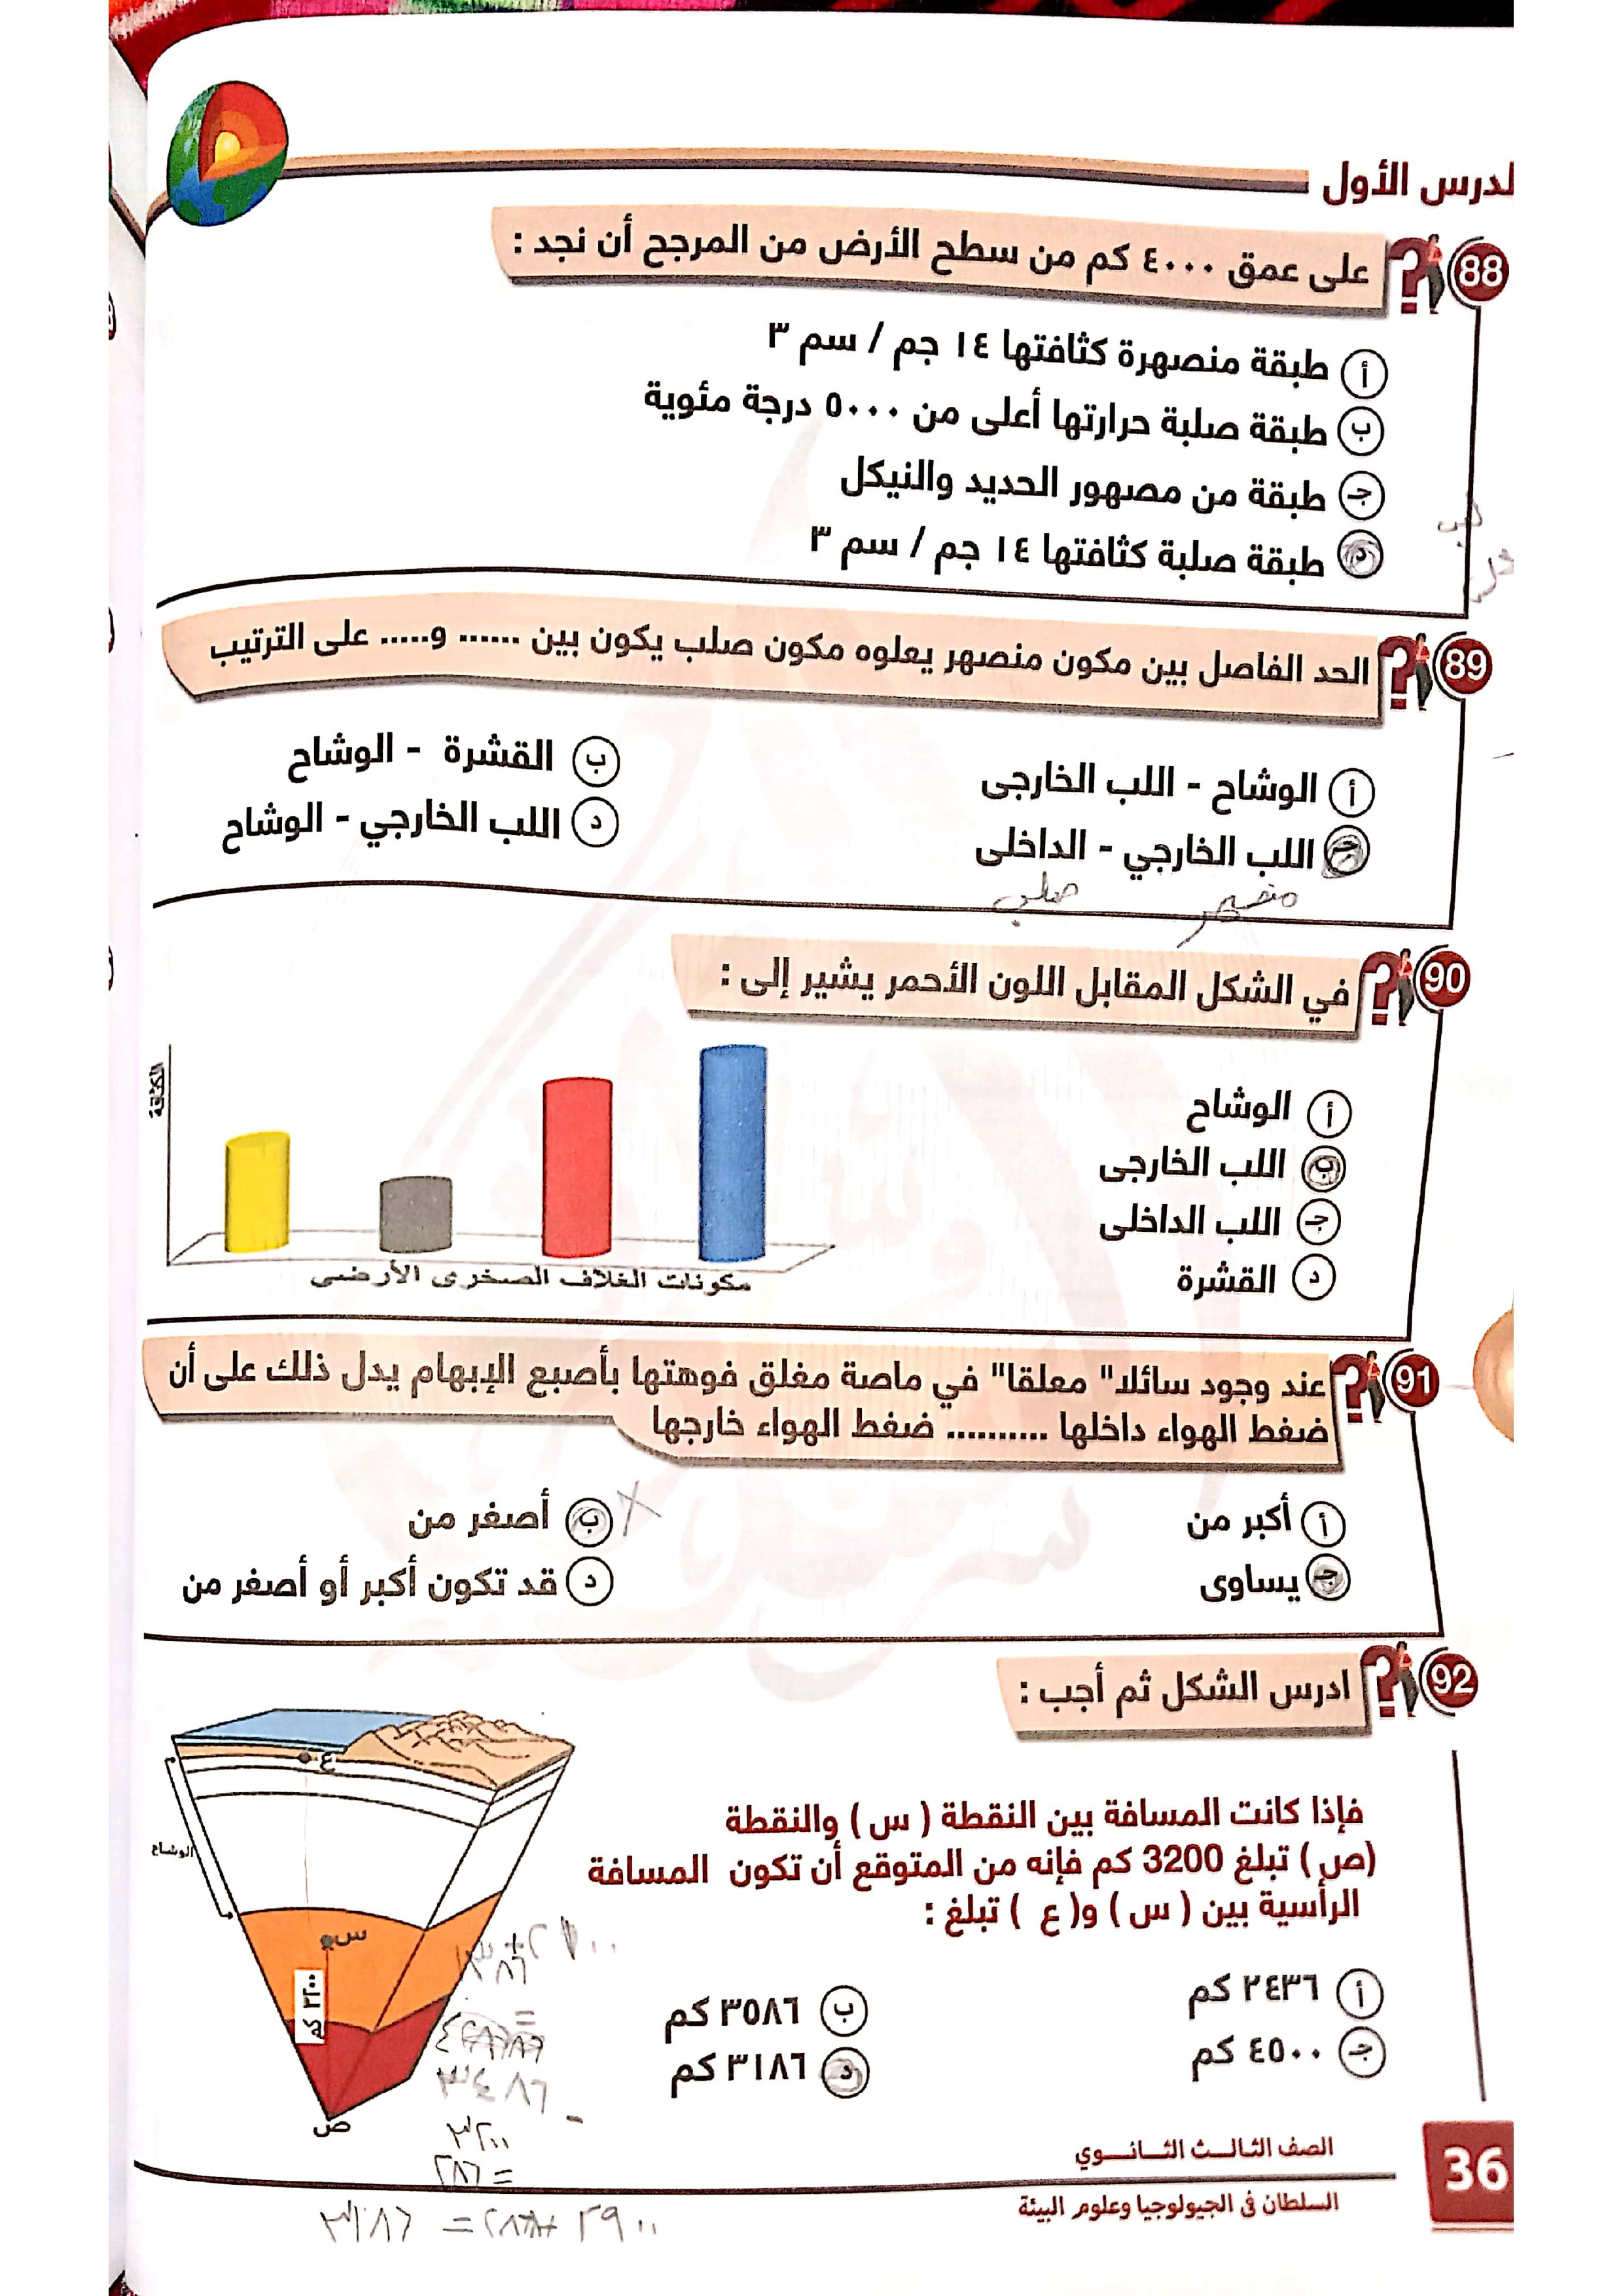 لدرس الأول
88
على عمق ٤٠٠٠ كم من سطح الأرض من المرجح أن نجد :
أ طبقة منصهرة كثافتها ١٤ جم / سم ٣
ب طبقة صلبة حرارتها أعلى من ٥٠٠٠ درجة مئوية
جـ طبقة من مصهور الحديد والنيكل
د طبقة صلبة كثافتها ١٤ جم / سم ٣
89
الحد الفاصل بين مكون منصهر يعلوه مكون صلب يكون بين ...... و..... على الترتيب
أ الوشاح - اللب الخارجى
ب القشرة - الوشاح
جـ اللب الخارجي - الداخلى
د اللب الخارجي - الوشاح
منصهر
صلب
90
في الشكل المقابل اللون الأحمر يشير إلى :
أ الوشاح
ب اللب الخارجى
جـ اللب الداخلى
د القشرة
الكثافة
مكونات الغلاف الصخرى الأرضى
91
عند وجود سائلا" معلقا" في ماصة مغلق فوهتها بأصبع الإبهام يدل ذلك على أن
ضغط الهواء داخلها .......... ضغط الهواء خارجها
أ أكبر من
ب أصغر من
جـ يساوى
د قد تكون أكبر أو أصغر من
92
ادرس الشكل ثم أجب :
فإذا كانت المسافة بين النقطة ( س ) والنقطة
(ص ) تبلغ 3200 كم فإنه من المتوقع أن تكون المسافة
الرأسية بين ( س ) و( ع ) تبلغ :
أ ٢٤٣٦ كم
ب ٣٥٨٦ كم
جـ ٤٥٠٠ كم
د ٣١٨٦ كم
ع
الوشاح
س
٣٢٠٠ كم
ص
٣٤٨٦
-
٣٢٠٠
= ٢٨٦
٢٩٠٠ + ٢٨٦ = ٣١٨٦
الصف الثالث الثانوي
السلطان فى الجيولوجيا وعلوم البيئة
36